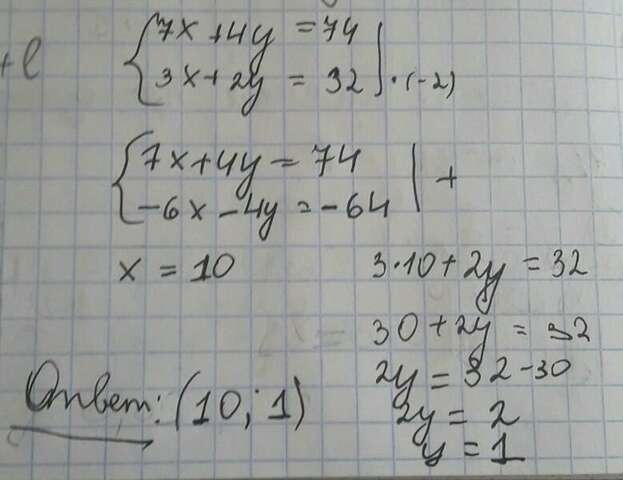 7x + 4y = 74
3x + 2y = 32 | · (-2)
7x + 4y = 74
-6x - 4y = -64 | +
x = 10
3·10 + 2y = 32
30 + 2y = 32
2y = 32 - 30
2y = 2
y = 1
Ответ: (10; 1)